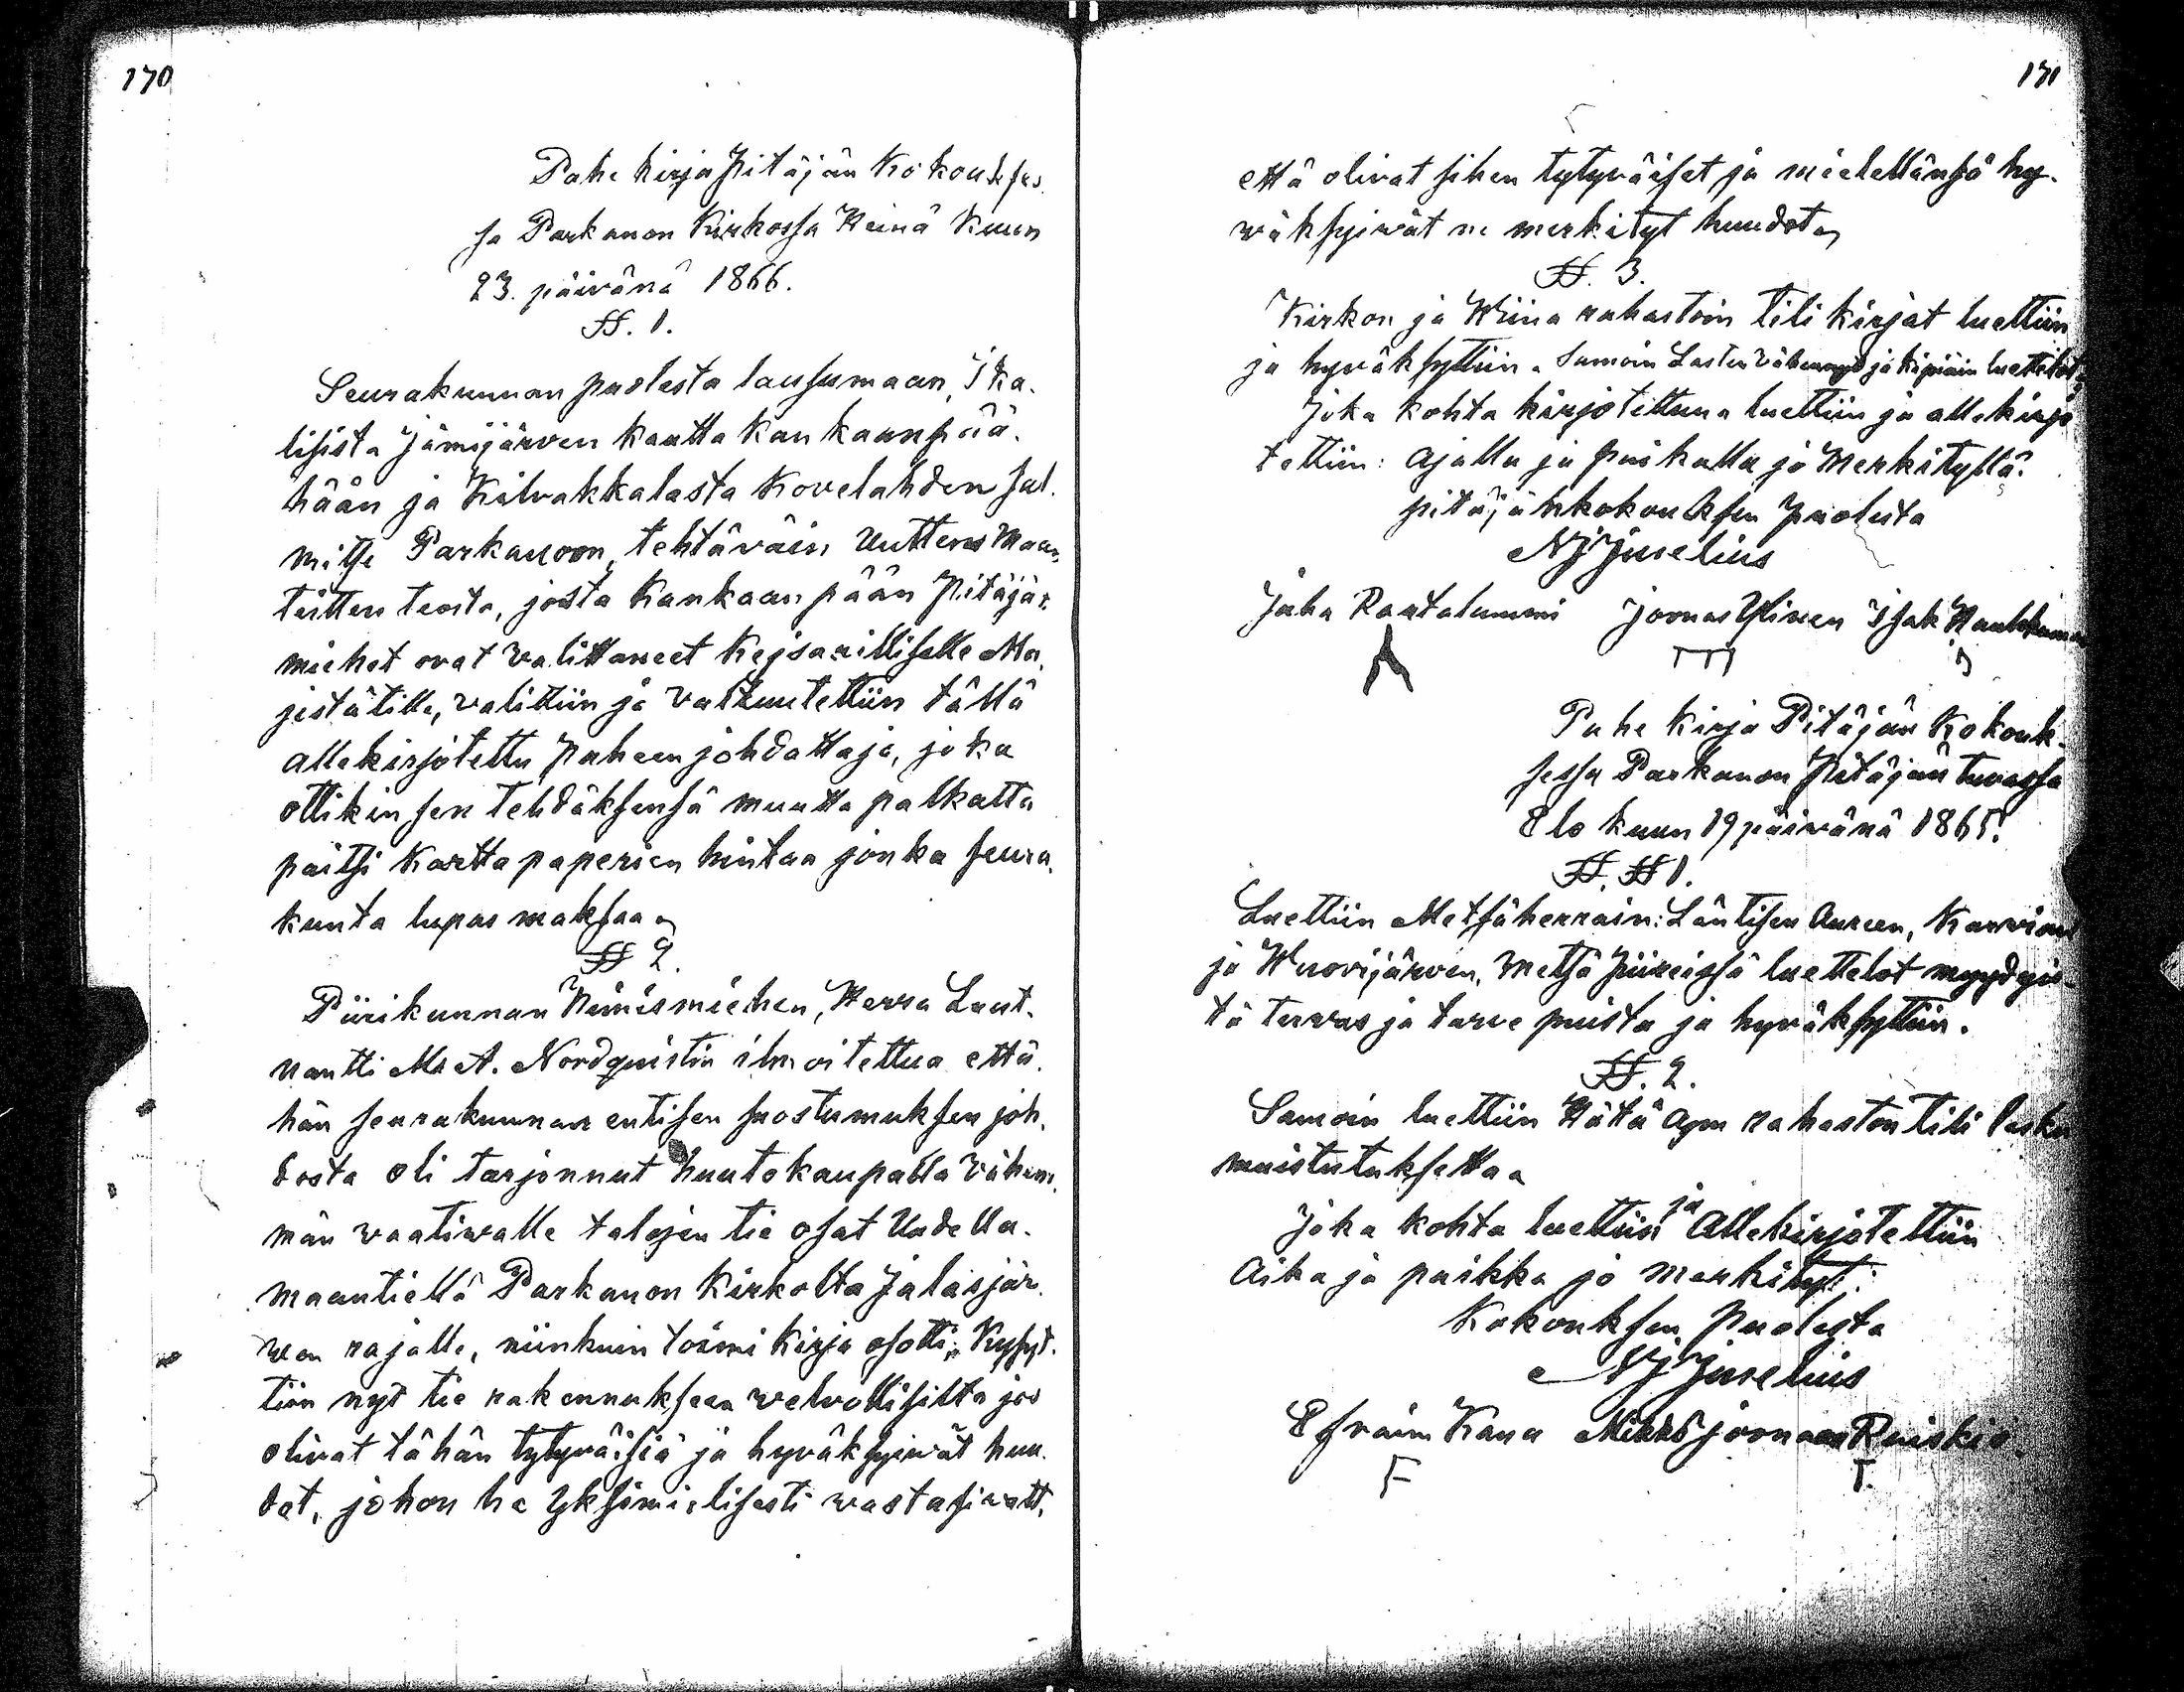 170
Puhe kirja Pitäjän Kokoukses
sa Parkanon Kirkossa Heinä Kuun
23. päivänä 1866.
§§. 1.
Seurakunnan puolesta lausumaan, Ika-
lisista Jämijärven kautta Kankaanpää-
hään ja Kilvakkalasta Kovelahden sal-
mitse Parkanoon, tehtäväin Uuttens Maan-
teitten teosta, josta Kankaanpään Pitäjän
miehet ovat valittaneet Kejsarilliselle Ma-
jestätille, valittiin ja valtuutettiin tällä
allekirjotettu Puheenjohdattaja, joka
ottikin sen tehdäksensä muutta palkatta
paitsi Kartta paperien hintaa jonka seura-
kunta lupas maksaa.
§§ 2.
Piirikunnan Nimismiehen, Herra Luut-
nantti M. A. Nordquistin ilmoitettua että
hän seurakunnan entisen suostumuksen joh-
dosta oli tarjonnut huutokaupalla vähem-
män vaativalle talojen tie osat Uudella-
maantiellä Parkanon Kirkolta Jalasjär-
ven rajalle, niinkuin toimi Kirja osotti; Kysyt-
tiin nyt tie rakennukseen velvollisilta jos
olivat tähän tytyväisiä ja hyväksyivät huu-
dot, johon he yksimielisesti vastasivatt,
171
että olivat siihen tytyväiset ja mielellänsä hy-
wäksyivät ne merkityt huudot.
§§. 3.
Kirkon ja Wiina rahastoin tili kirjat luettiin
ja hyväksyttiin. Samoin Lasten ja luettelot
Joka kohta kirjotettuna luettiin ja allekirjo
tettiin: Ajalla ja paikalla jo Merkityllä.
pitäjähkokouksen puolesta
NJ Juselius
Juha Rantalammi Joonas Ylinen Isak
Puhe Kirja Pitäjän Kokouk-
sessa Parkanon Pitäjän tuvassa
Elo kuun 19 päivänä 1865.
§§. §§ 1.
Luettiin Metsäherrain: Läntisen Aureen, Karvian
ja Wuorijärven, Metsä Piireissä luettelot myydyis-
tä tervas ja tarve puista ja hyväksyttiin.
§§. 2.
Samoin luettiin Hätä Apu rahaston tili lasku
muistutuksetta.
Joka kohta luettiin ja Allekirjotettiin
Aika ja paikka jo merkityt:
Kokouksen Puolesta
NJ Juselius
Efraim Kana Mikki Joonaan Ruiskio.
F T.